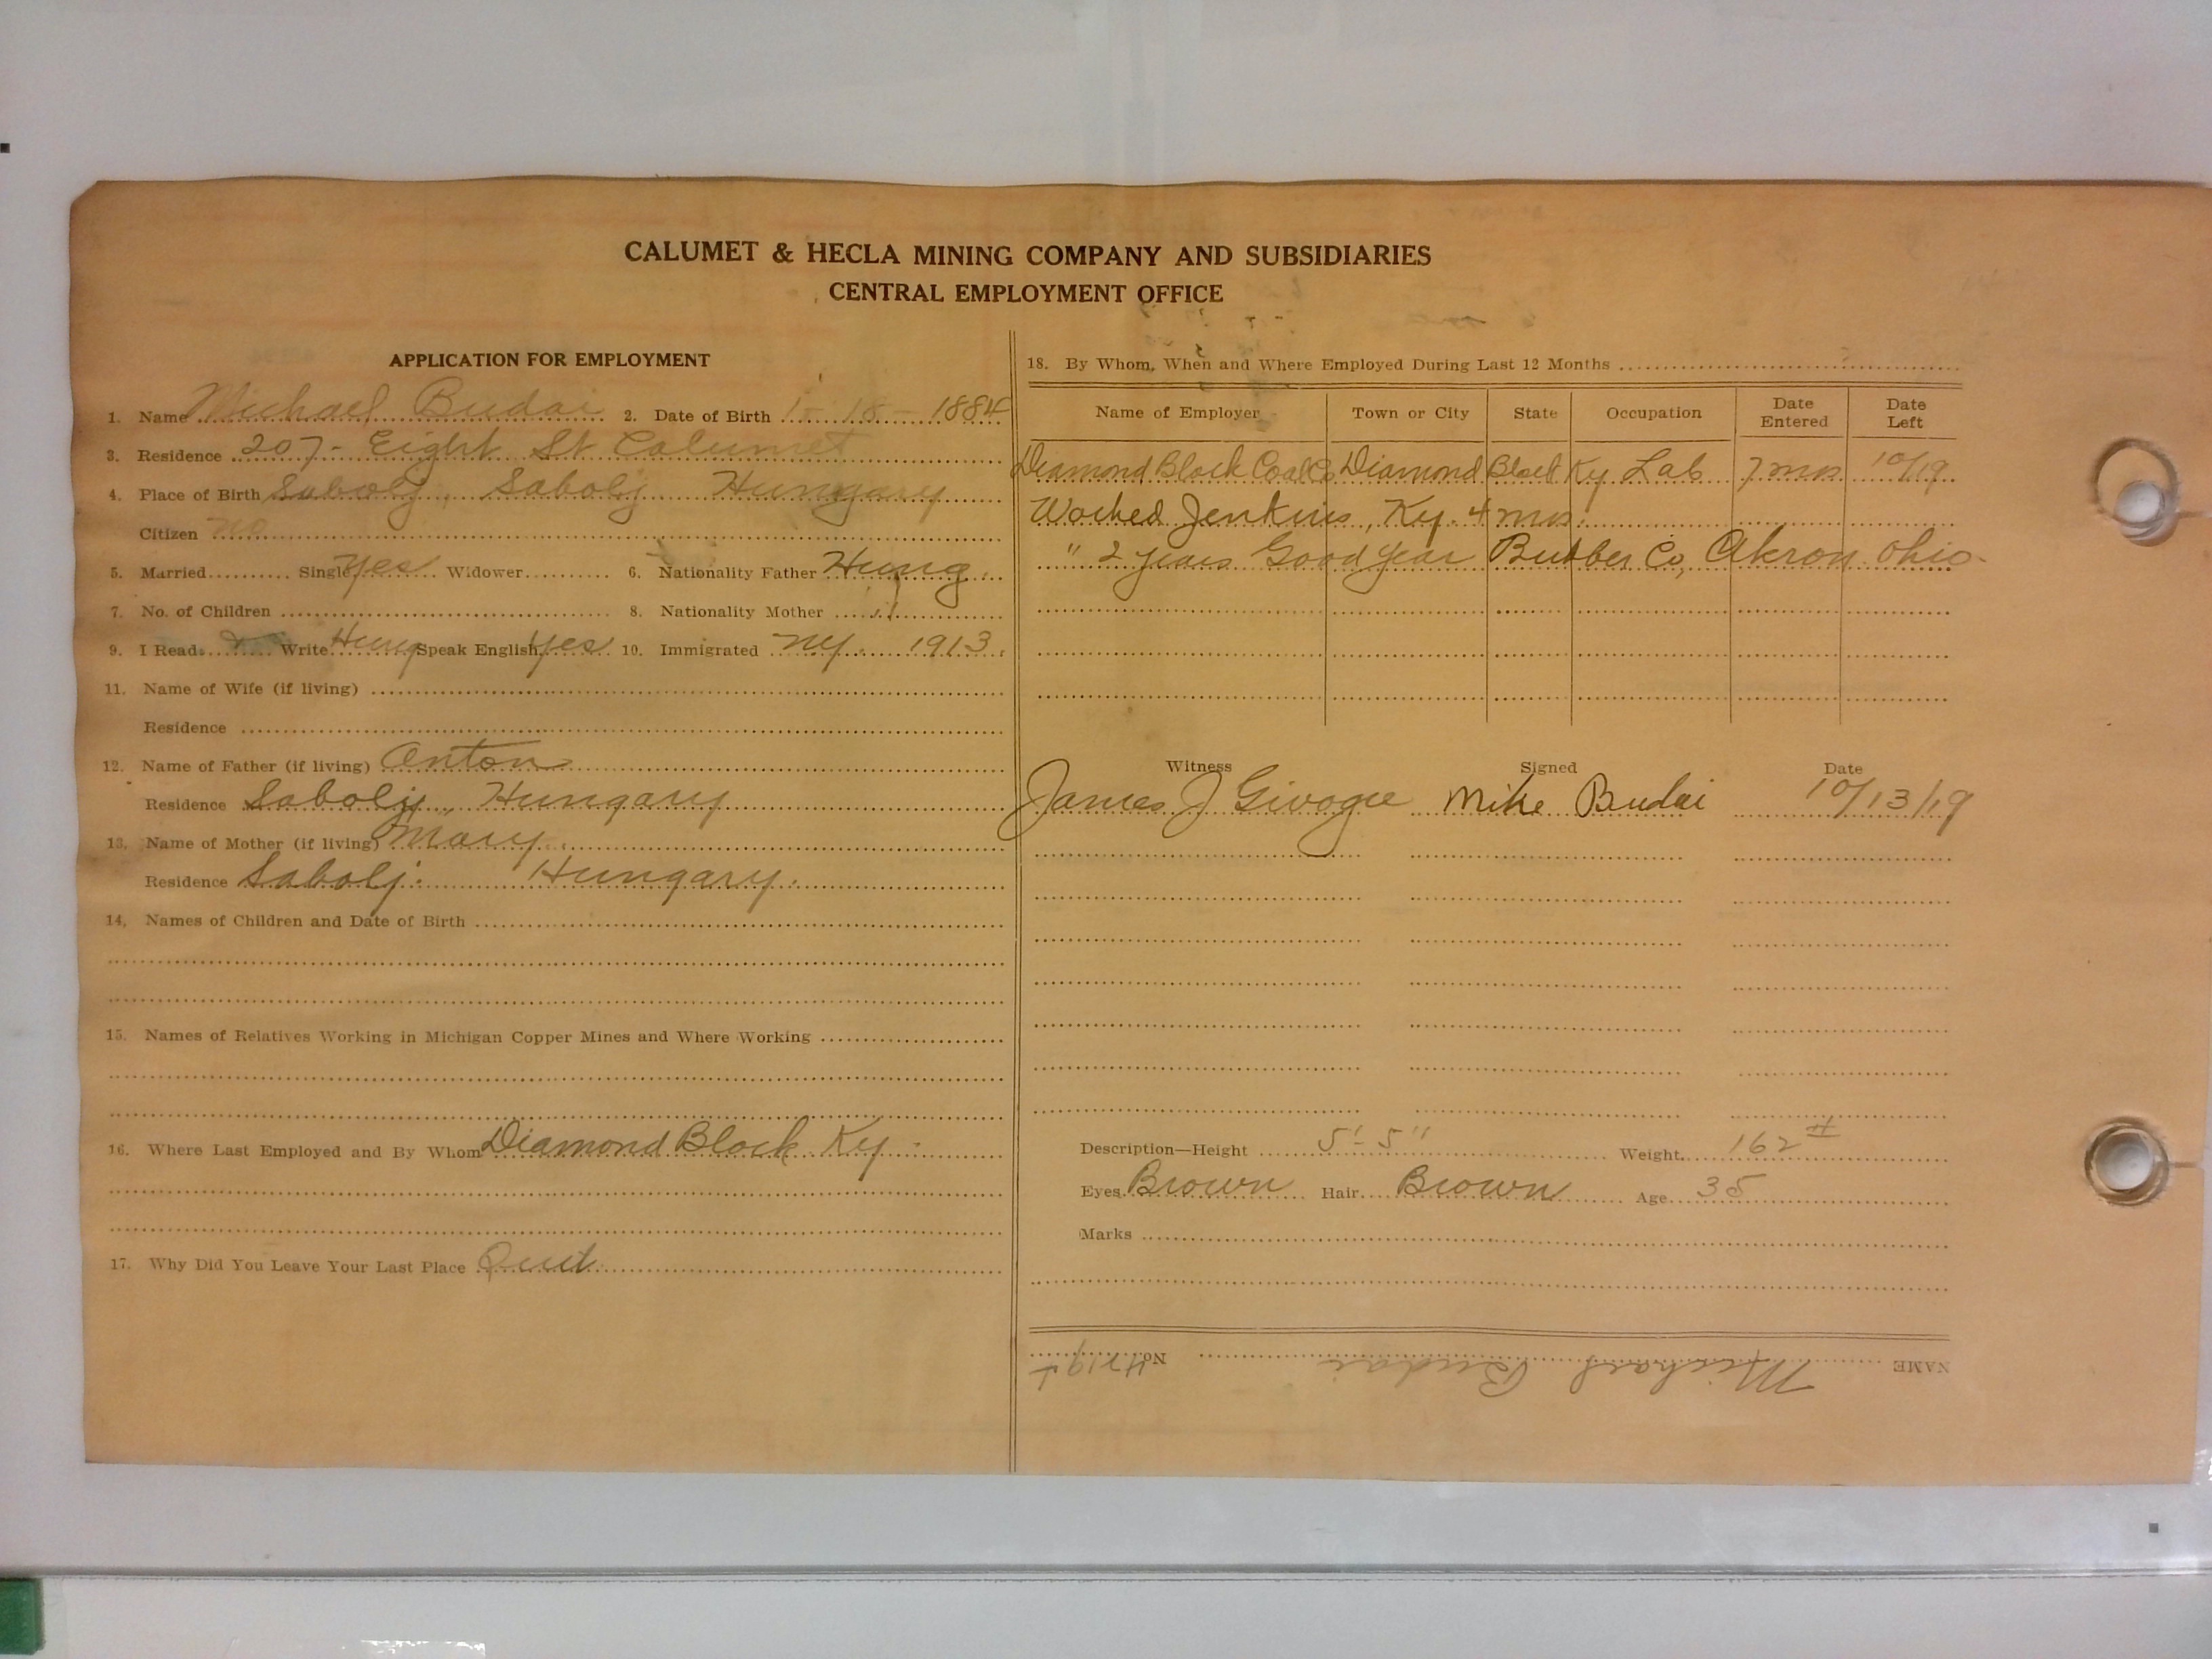 CALUMET & HECLA MINING COMPANY AND SUBSIDIARIES
CENTRAL EMPLOYMENT OFFICE
APPLICATION FOR EMPLOYMENT
1. Name Michael Budai 2. Date of Birth 1-18-1884
3. Residence 207- Eight St Calumet
4. Place of Birth Sabolj, Sabolj Hungary
Citizen no
5. Married Single Yes Widower 6. Nationality Father Hung
7. No. of Children 8. Nationality Mother "
9. I Read & Write Hung Speak English yes 10. Immigrated NY. 1913.
11. Name of Wife (if living)
Residence
12. Name of Father (if living) Anton
Residence Sabolj, Hungary
13. Name of Mother (if living) Mary.
Residence Sabolj. Hungary.
14. Names of Children and Date of Birth
15. Names of Relatives Working in Michigan Copper Mines and Where Working
16. Where Last Employed and By Whom Diamond Block Ky.
17. Why Did You Leave Your Last Place Quit
18. By Whom, When and Where Employed During Last 12 Months
Name of Employer Town or City State Occupation Date Entered Date Left
Diamond Block Coal Co Diamond Block Ky Lab 7 mos 10/19
Worked Jenkins, Ky. 4 mos.
" 2 years Good Year Rubber Co, Akron Ohio-
Witness Signed Date
James J Givogue Mike Budai 10/13/19
Description—Height 5'-5" Weight 162#
Eyes Brown Hair Brown Age 35
Marks
NAME Michael Budai No.